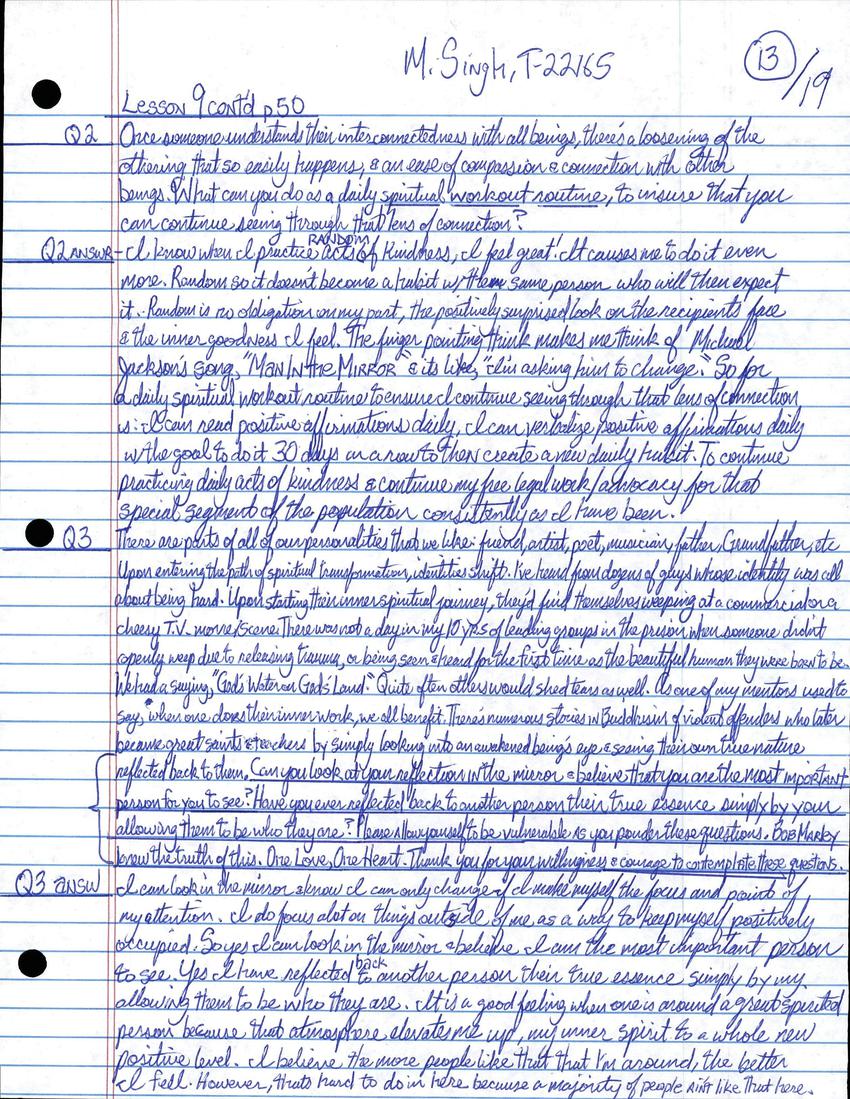 M. Singh, T-22165
13/19
Lesson 9 cont'd p.50
Q2 Once someone understands their interconnectedness with all beings, there's a loosening of the
othering that so easily happens, & an ease of compassion & connection with other
beings. What can you do as a daily spiritual workout routine, to insure that you
can continue seeing through that lens of connection?
Q2 ANSWR - I know when I practice RANDOM acts of Kindness, I feel great! It causes me to do it even
more. Random so it doesn't become a habit w/them same person who will then expect
it. Random is no obligation on my part, the positively surprised look on the recipients face
& the inner goodness I feel. The finger pointing think makes me think of Michael
Jackson's song, "Man In the Mirror" & its like, "I'm asking him to change." So for
a daily spiritual workout routine to ensure I continue seeing through that lens of connection
is: I can read positive affirmations daily, I can verbalize positive affirmations daily
w/the goal to do it 30 days in a row to then create a new daily habit. To continue
practicing daily acts of kindness & continue my free legal work/advocacy for that
special segment of the population consistently as I have been.
Q3 There are parts of all of our personalities that we like: friend, artist, poet, musician, father, Grandfather, etc
Upon entering the path of spiritual transformation, identities shift. I've heard from dozens of guys whose identity was all
about being hard. Upon starting their inner spiritual journey, they'd find themselves weeping at a commercial or a
cheesy T.V. movie/scene. There was not a day in my 10 yrs of leading groups in the prison when someone didn't
openly weep due to releasing trauma, or being seen & heard for the first time as the beautiful human they were born to be.
We had a saying, "God's Water on God's Land." Quite often others would shed tears as well. As one of my mentors used to
say, "when one does their inner work, we all benefit. There's numerous stories in Buddhism of violent offenders who later
became great saints & teachers by simply looking into an awakened being's eye & seeing their own true nature
reflected back to them. Can you look at your reflection in the mirror & believe that you are the most important
person for you to see? Have you ever reflected back to another person their true essence simply by your
allowing them to be who they are? Please allow yourself to be vulnerable as you ponder these questions. Bob Marley
knew the truth of this. One Love, One Heart - Thank you for your willingness & courage to contemplate these questions.
Q3 ANSW I can look in the mirror & know I can only change if I make myself the focus and point of
my attention. I do focus alot on things outside of me, as a way to keep myself positively
occupied. So yes I can look in the mirror & believe I am the most important person
to see. Yes I have reflected back to another person their true essence simply by my
allowing them to be who they are. It is a good feeling when one is around a great spirited
person because that atmosphere elevates me up, my inner spirit to a whole new
positive level. I believe the more people like that that I'm around, the better
I feel. However, thats hard to do in here because a majority of people ain't like that here.